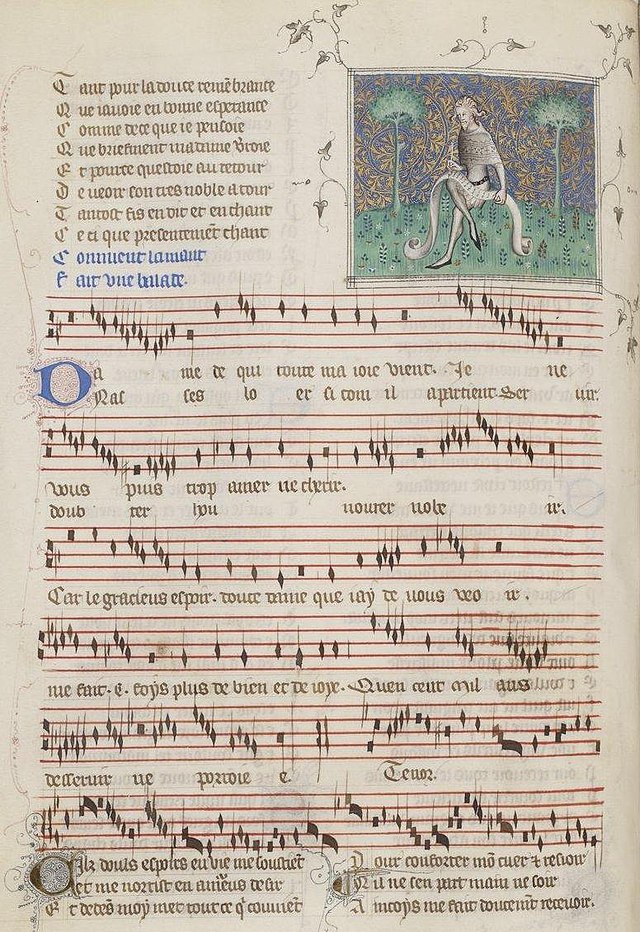 Tant pour la douce remēbrance
Que iauoie en bonne esperance
Comme de ce que ie pensoie
Que briefment ma dame verroie
Et pource questoie au retour
De veoir son tres noble atour
Tantost fis en dit et en chant
Ce ci que presentement chant
Comment lamant
Fait vne balade.
Dame de qui toute ma ioie vient. Je ne
vous puis trop amer ne cherir.
Nas ses lo er si com il apartient Ser uir
doub ter hon nourer nobe ir.
Car le gracieus espoir. douce dame que iay de vous veo ir.
me fait. c. foys plus de bien et de ioye. Quen cent mil ans
desseruir ne porroie e. Tenor.
Cilz douls espoirs en vie me soustiēt
et me norrist en amoureus desir
Et dedēs moy met tout ce q̄ couuiēt
Pour conforter mō cuer & resioir
Nil ne sen part main ne soir
Aincoys me fait doucemēt receuoir.